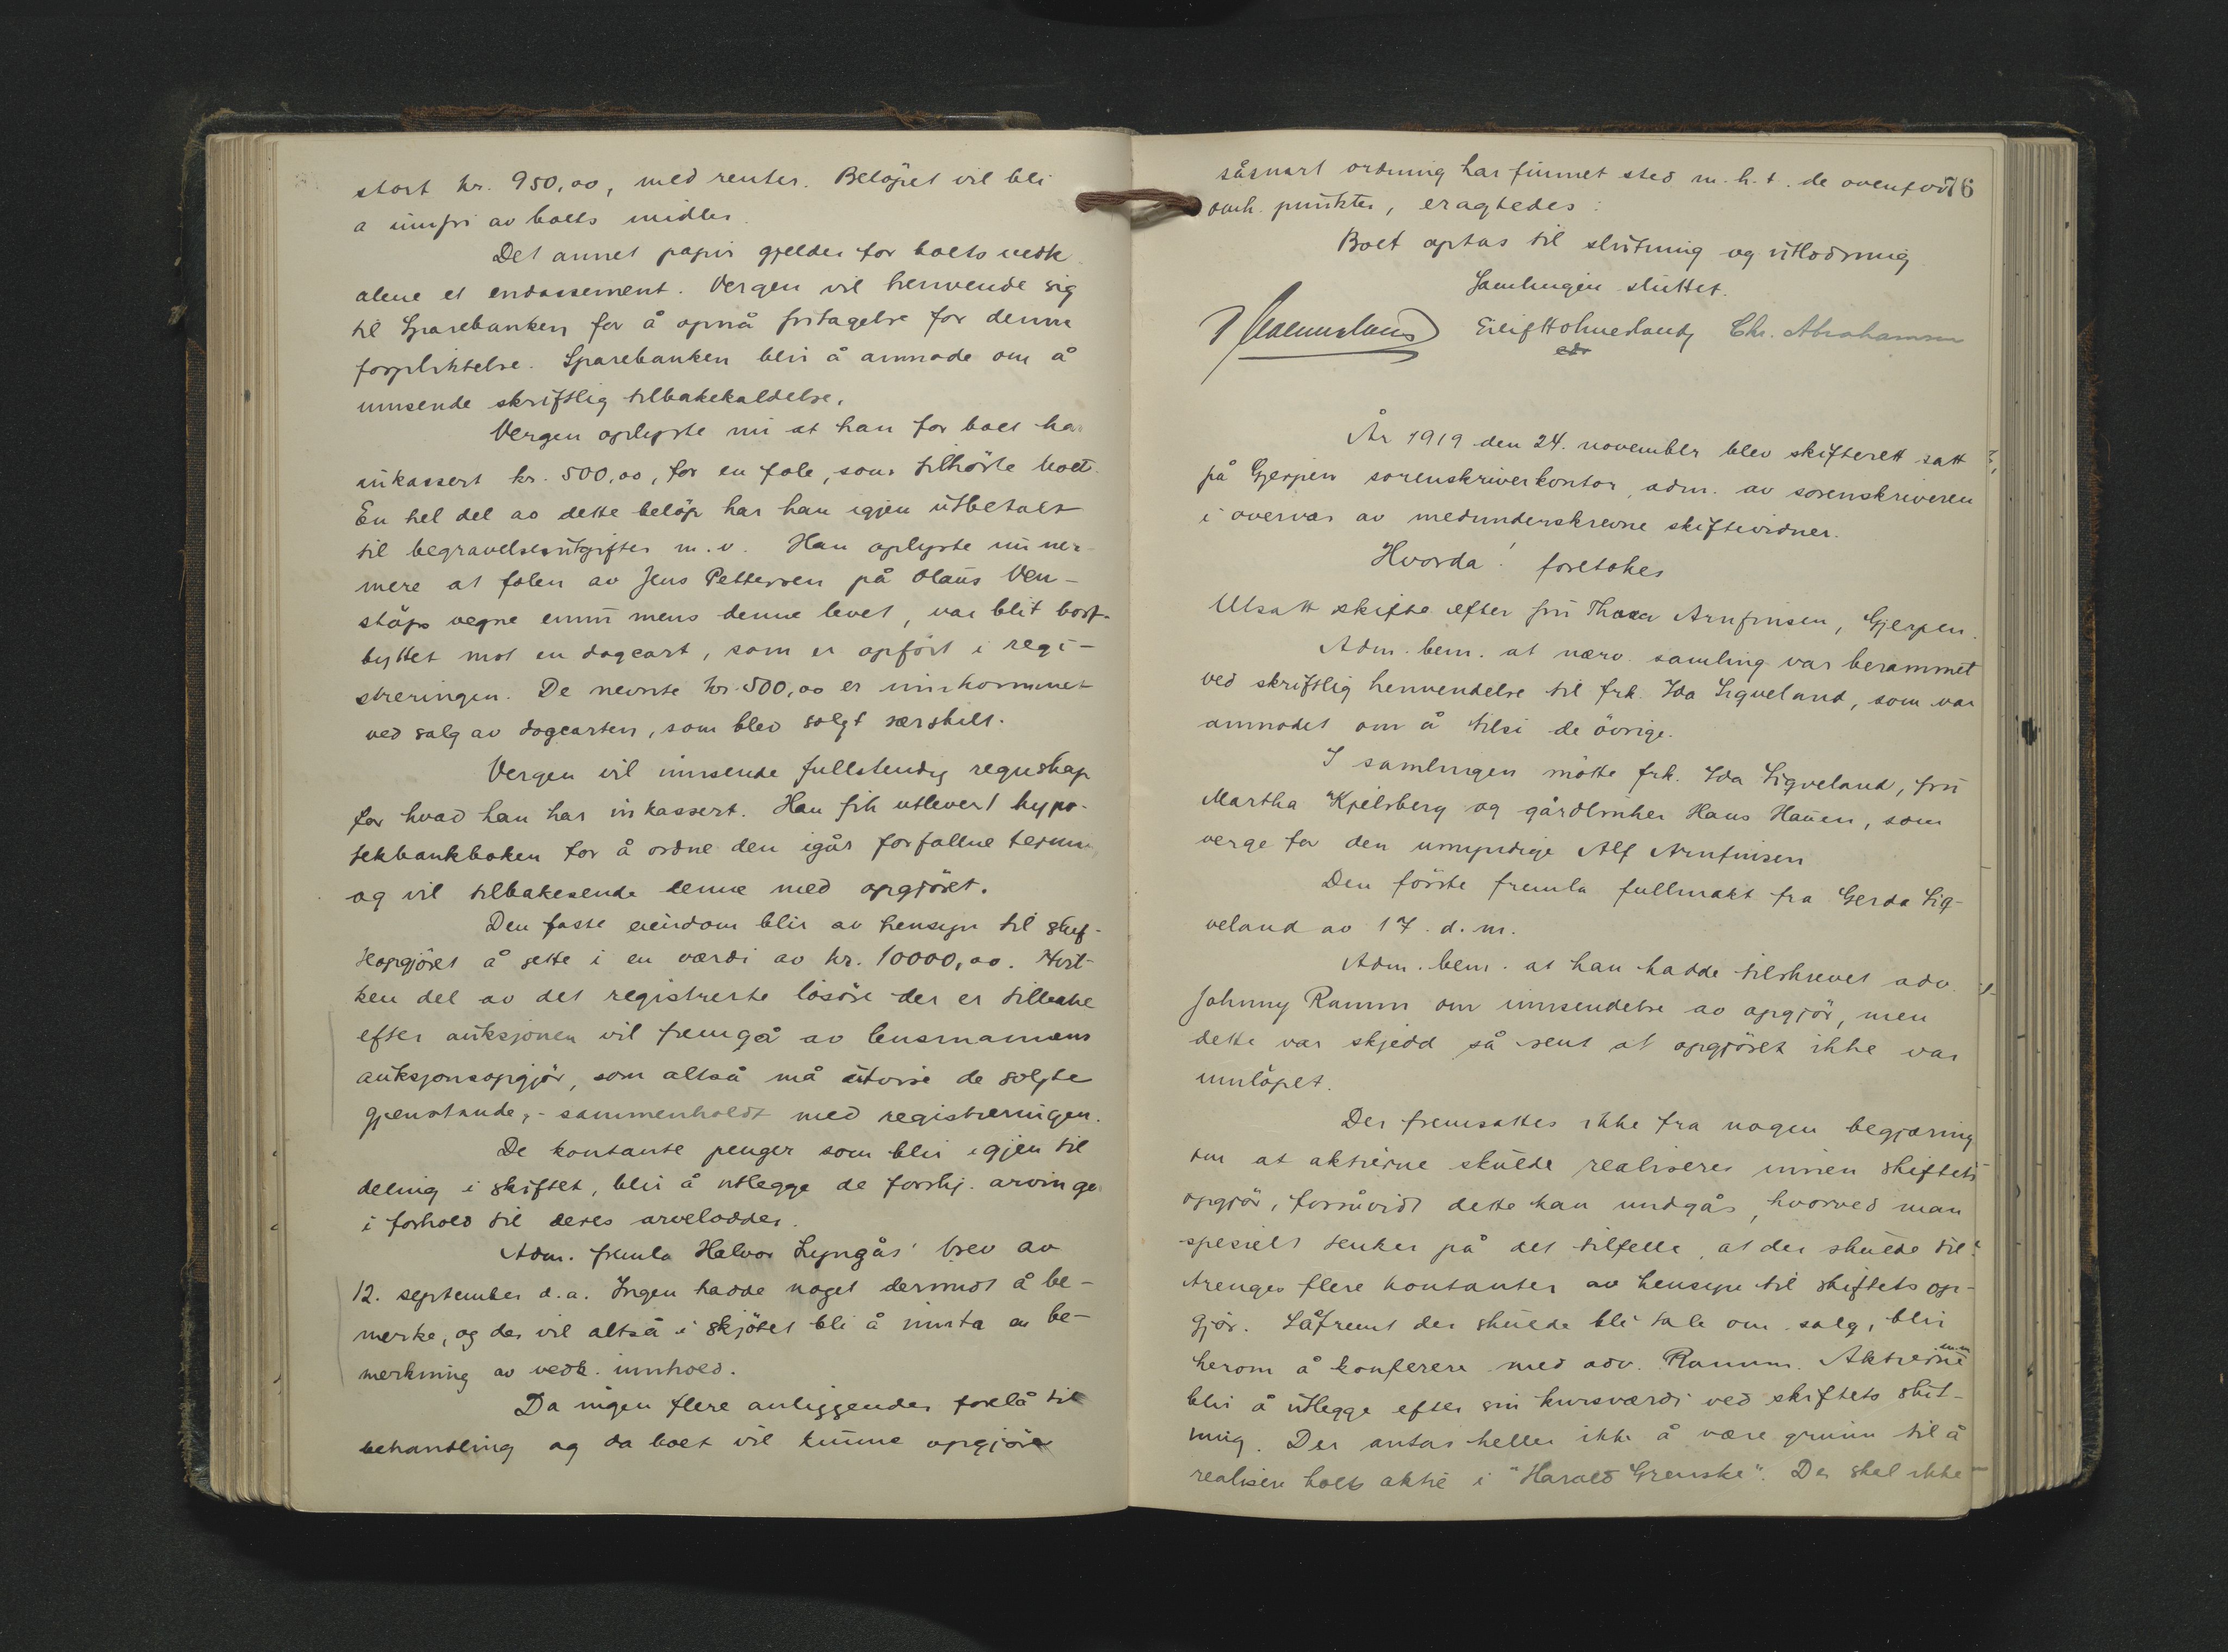 stort kr. 950,00, med renter. Beløpet vil bli
a innfri av boets midler.
Det annet papir gjelder for boets vedk.
alene et endossement. Vergen vil henvende sig
til Sparebanken for å opnå fritagelse for denne
forpliktelse. Sparebanken blir å anmode om å
innsende skriftlig tilbakekaldelse.
Vergen oplyste nu at han for boet ha
inkassert kr. 500,00, for en fole, som tilhörte boet.
En hel del av dette belöp har han igjen utbetalt
til begravelsesutgifter m.v. Han oplyste nu ner-
mere at folen av Jens Pettersen på Olaus Ven-
stöps vegne ennu mens denne levet, var blit bort-
byttet mot en dogcart, som er opfört i regi-
streringen. De nevnte kr. 500,00 er innkommet
ved salg av dogcarten, som blev solgt særskilt.
Vergen vil innsende fullstendig regnskap
for hvad han har inkassert. Han fik utlevert hypo-
tekbankboken for å ordne den igår forfallne termin
og vil tilbakesende denne med opgjöret.
Den faste eiendom blir av hensyn til skif-
teopgjöret å sette i en værdi av kr. 10000,00. Hvil-
ken del av det registrerte lösöre der er tilbake
efter auksjonen vil fremgå av lensmannens
auksjonsopgjör, som altså må utvise de solgte
gjenstande, - sammenholdt med registreringen.
De kontante penger som blir igjen til
deling i skiftet, blir å utlegge de forskj. arvinger
i forhold til deres arvelodder.
Adm. fremla Halvor Lyngås' brev av
12. september d.a. Ingen hadde noget derimot å be-
merke, og der vil altså i skjötet bli å innta en be-
merkning av vedk. innhold.
Da ingen flere anliggender forelå til
behandling og da boet vil kunne opgjöre
såsnart ordning har funnet sted m.h.t. de ovenfor 76
omh. punkter, eragtedes:
Boet optas til slutning og utlodning
Samlingen sluttet.
Eilif Holmesland Chr. Abrahamsen
År 1919 den 24. november blev skifterett satt
på Gjerpen sorenskriverkontor, adm. av sorenskriveren
i overvær av medunderskrevne skiftevidner.
Hvorda! foretokes
Utsatt skifte efter fru Thora Arnfinsen, Gjerpen.
Adm. bem. at nærv. samling var berammet
ved skriftlig henvendelse til frk. Ida Ligveland, som var
anmodet om å tilsi de övrige.
I samlingen mötte frk. Ida Sigveland, fru
Martha Kjelsberg og gårdbruker Hans Hauen, som
verge for den umyndige Alf Arnfinsen
Den förste fremla fullmakt fra Gerda Sig-
veland av 17. d.m.
Adm. bem. at han hadde tilskrevet adv.
Johnny Ramm om innsendelse av opgjör, men
dette var skjedd så sent at opgjöret ikke var
innlöpet.
Der fremsattes ikke fra nogen begjæring
om at aktierne skulde realiseres innen skiftets
opgjör, forsåvidt dette kan undgås, hvorved man
spesielt tenker på det tilfelle, at der skulde til-
trenges flere kontanter av hensyn til skiftets op-
gjör. Såfremt der skulde bli tale om salg, blir
herom å konferere med adv. Ramm. Aktierne
blir å utlegge efter sin kursværdi ved skiftets slut-
ning. Der antas heller ikke å være grunn til å
realisere boets aktie i "Harald Grenske". Der skal ikke